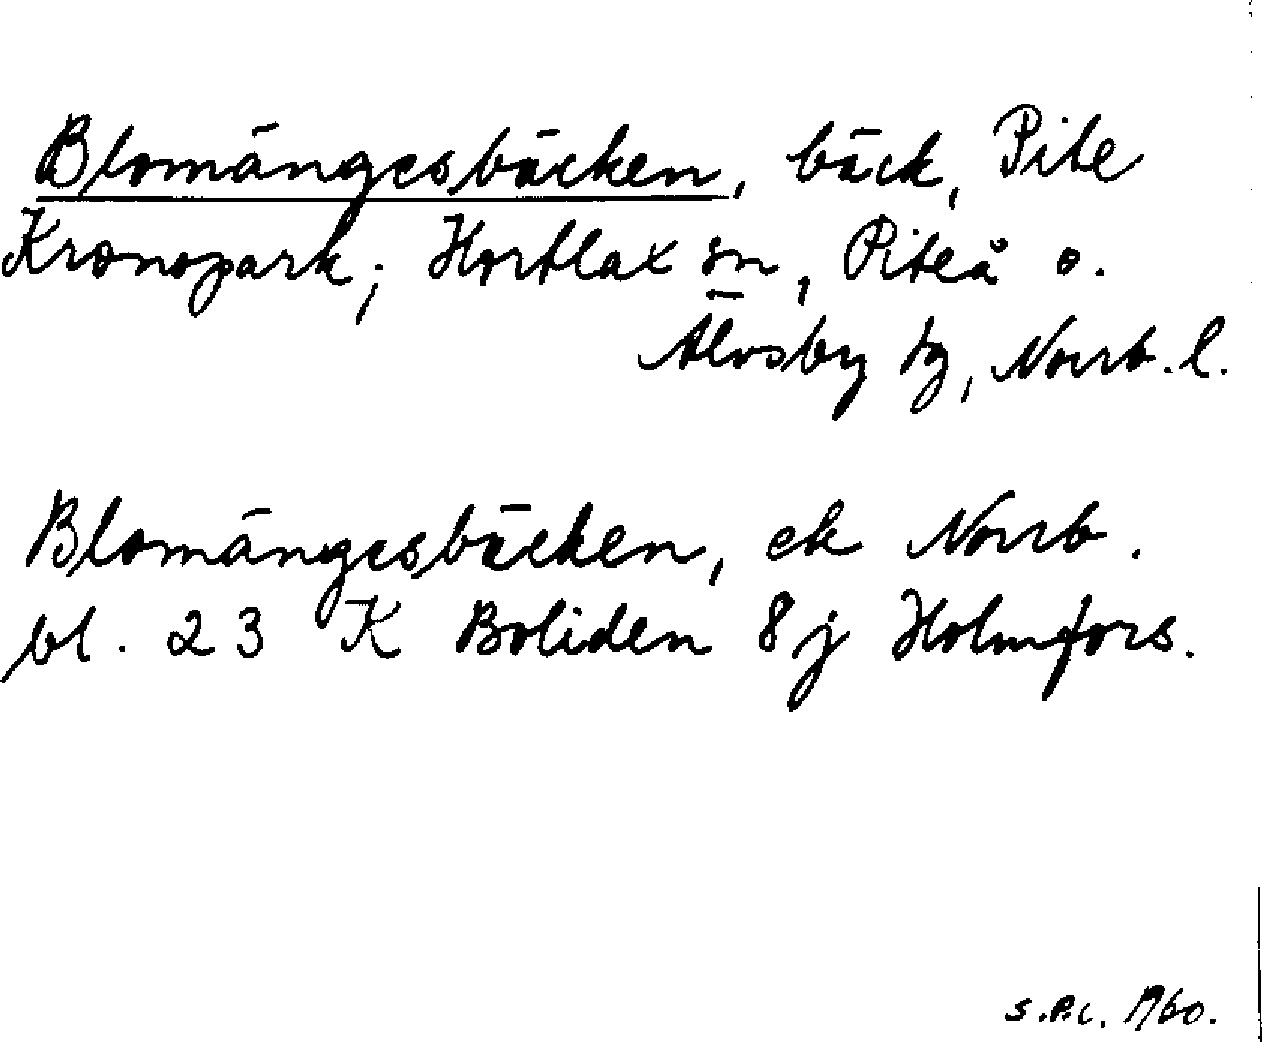 Blomängesbäcken, bäck, Pite
Kronopark; Hortlax sn, Piteå o.
Älvsby tg, Norrb. l.
Blomängesbäcken, ek Norrb.
bl. 23 K Boliden 8j Holmfors.
S.P.C. 1960.